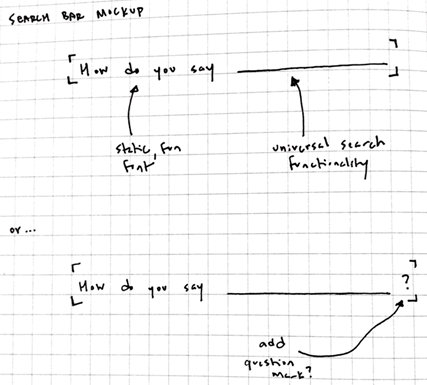 SEARCH BAR MOCKUP
How do you say
static, fun
font
universal search
functionality
or ...
How do you say ?
add
question
mark?